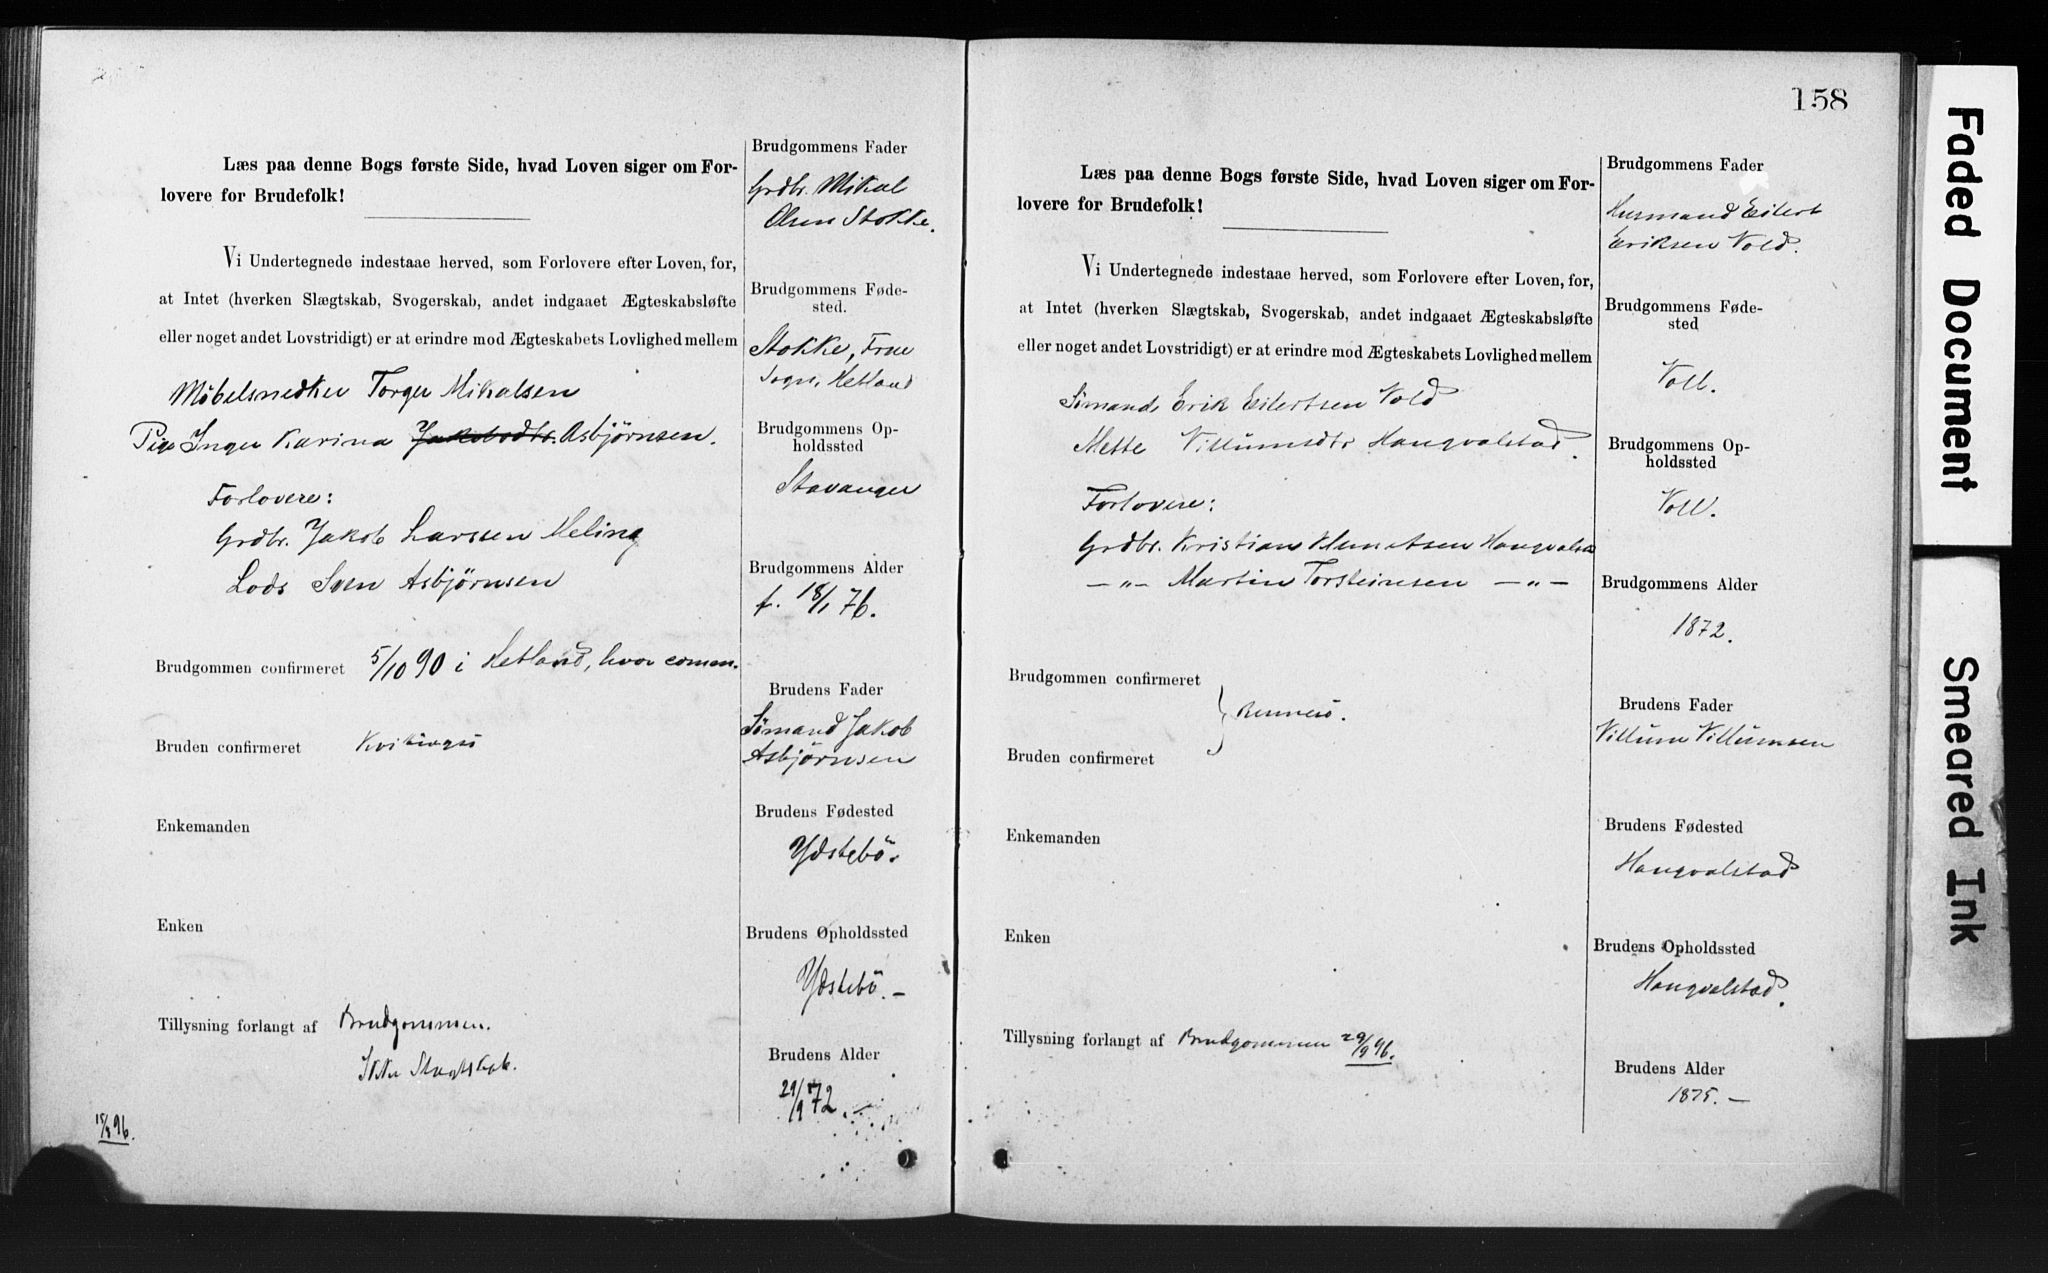 Læs paa denne Bogs første Side, hvad Loven siger om For-
lovere for Brudefolk!
Vi Undertegnede indestaae herved, som Forlovere efter Loven, for,
at Intet (hverken Slægtskab, Svogerskab, andet indgaaet Ægteskabsløfte
eller noget andet Lovstridigt) er at erindre mod Ægteskabets Lovlighed mellem
Møbelsnedker Torger Mikalsen
Pige Inger Karina Jakobsdtr. Asbjørnsen.
Forlovere:
Grdbr. Jakob Larssen Meling
Lods Sven Asbjørnsen
Brudgommen confirmeret 5/10 90 i Hetland, hvor
Bruden confirmeret Kvitingsø
Enkemanden
Enken
Tillysning forlangt af Brudgommen.
Ikke Slægtskab.
15/8 96.
Brudgommens Fader
Grdbr. Mikal
Olsen Stokke.
Brudgommens Føde-
sted.
Stokke, Frue
Sogn, Hetland
Brudgommens Op-
holdssted
Stavanger
Brudgommens Alder
f. 18/1 76.
Brudens Fader
Sømand Jakob
Asbjørnsen
Brudens Fødested
Ydstebö.
Brudens Opholdssted
Ydstebö. —
Brudens Alder
29/9 72. —
158
Læs paa denne Bogs første Side, hvad Loven siger om For-
lovere for Brudefolk!
Vi Undertegnede indestaae herved, som Forlovere efter Loven, for,
at Intet (hverken Slægtskab, Svogerskab, andet indgaaet Ægteskabsløfte
eller noget andet Lovstridigt) er at erindre mod Ægteskabets Lovlighed mellem
Sømand Erik Eilertsen Vold
Mette Villumsdtr Haugvalstad.
Forlovere:
Grdbr. Kristian
— „ — Martin Torsteinsen — „ —
Brudgommen confirmeret
Rennesö.
Bruden confirmeret
Enkemanden
Enken
Tillysning forlangt af Brudgommen 29/9 96.
Brudgommens Fader
Husmand Eilert
Eriksen Vold.
Brudgommens Føde-
sted
Voll.
Brudgommens Op-
holdssted
Voll.
Brudgommens Alder
1872.
Brudens Fader
Villum Villumsen
Brudens Fødested
Haugvalstad
Brudens Opholdssted
Haugvalstad.
Brudens Alder
1875. —
Faded Document
Smeared Ink